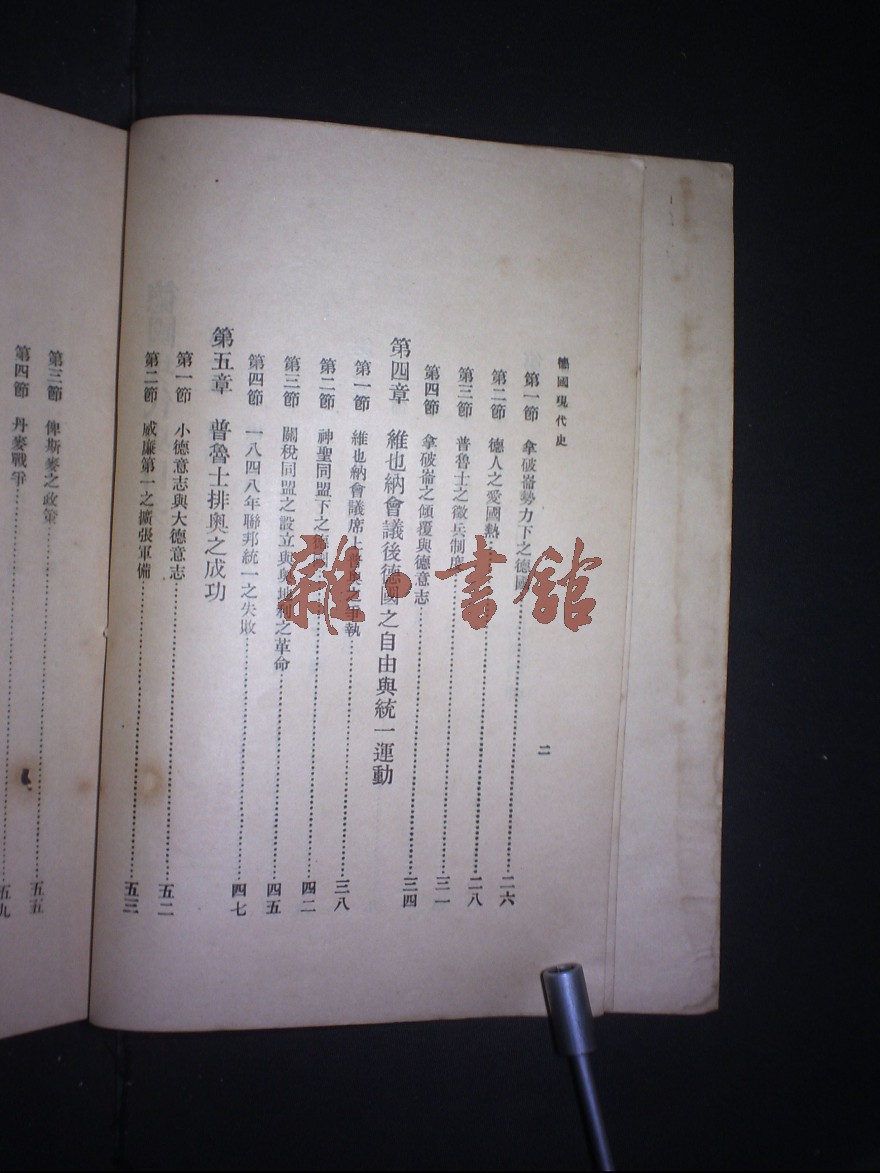 德國現代史
二
第一節 拿破崙勢力下之德國 二六
第二節 德人之愛國熱 二八
第三節 普魯士之徵兵制度 三一
第四節 拿破崙之傾覆與德意志 三四
第四章 維也納會議後德國之自由與統一運動
第一節 維也納會議席上普奧之爭執 三八
第二節 神聖同盟下之德國 四二
第三節 關稅同盟之設立與奧地利之革命 四五
第四節 一八四八年聯邦統一之失敗 四七
第五章 普魯士排奧之成功
第一節 小德意志與大德意志 五二
第二節 威廉第一之擴張軍備 五三
第三節 俾斯麥之政策 五五
第四節 丹麥戰爭 五九
雜·書館